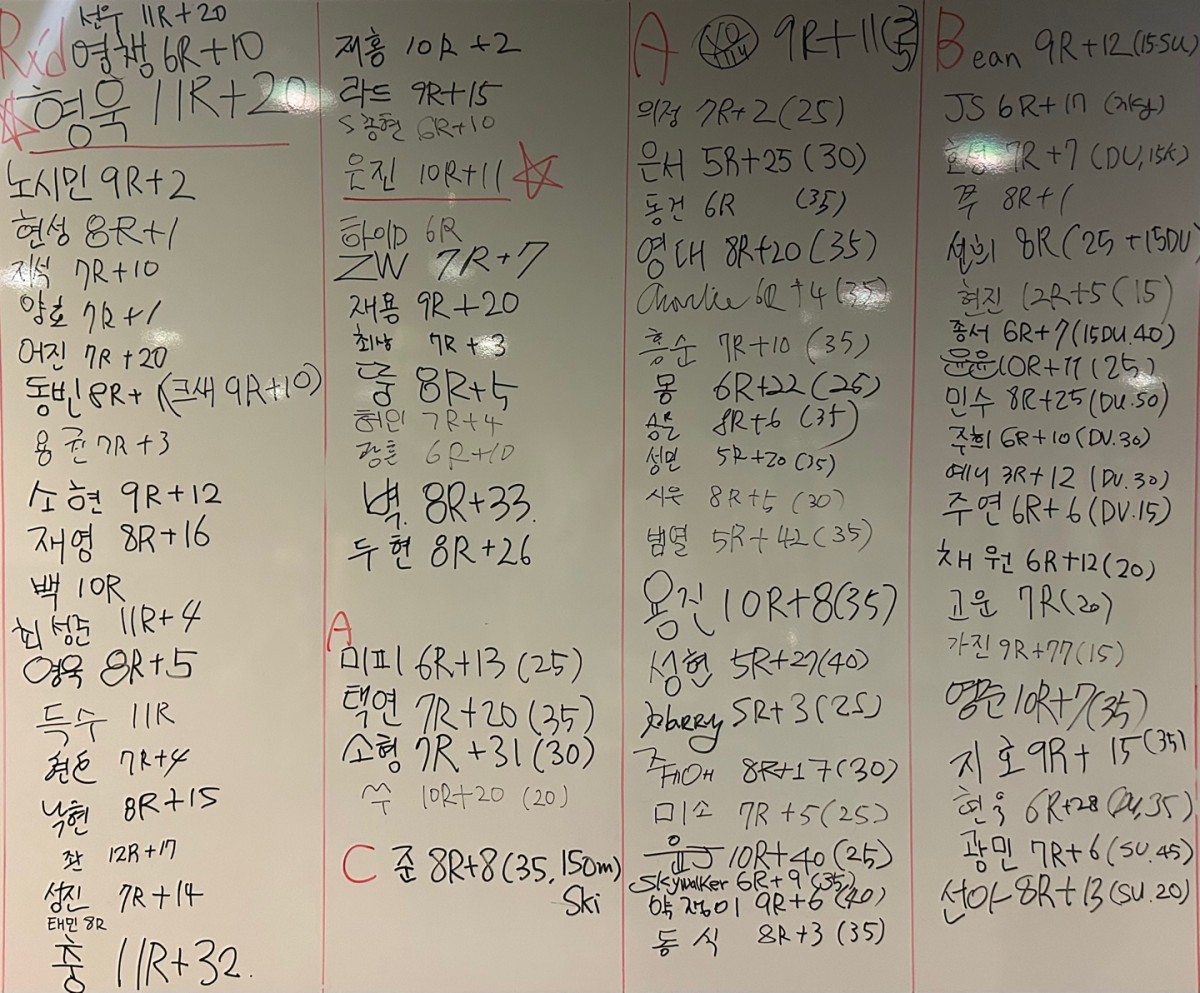 Rxd
선우 11R+20
영챙 6R+10
형욱 11R+20
노시민 9R+2
현성 8R+1
지석 7R+10
양호 7R+1
어진 7R+20
동빈 8R+1 (크새 9R+10)
용권 7R+3
소현 9R+12
재영 8R+16
백 10R
최성준 11R+4
영욱 8R+5
득수 11R
7R+4
낙현 8R+15
좌 12R+17
성진 7R+14
태민 8R
충 11R+32.
재홍 10R+2
라드 9R+15
S종현 6R+10
은진 10R+11
하이D 6R
ZW 7R+7
재용 9R+20
최상 7R+3
뭉 8R+5
허인 7R+4
광훈 6R+10
벽. 8R+33.
두현 8R+26
A
미피 6R+13 (25)
택연 7R+20 (35)
소형 7R+31 (30)
쑤 10R+20 (20)
C 준 8R+8 (35, 150m)
Ski
A 9R+11(35)
의정 7R+2 (25)
은서 5R+25 (30)
동건 6R (35)
영대 8R+20 (35)
Charlie 6R+4 (35)
흥순 7R+10 (35)
몽 6R+22 (25)
8R+6 (35)
성민 5R+20 (35)
시웃 8R+5 (30)
범열 5R+42 (35)
용진 10R+8 (35)
성현 5R+27 (40)
5R+3 (25)
쥬애 8R+17 (30)
미소 7R+5 (25)
10R+40 (25)
Skywalker 6R+9 (35)
약쟁이 9R+6 (40)
동식 8R+3 (35)
Bean 9R+12 (15SU)
JS 6R+17
효성 7R+7 (DU, 15k)
쭈 8R+1
선희 8R (25+15DU)
현진 12R+5 (15)
종서 6R+7 (15DU.40)
윤윤 10R+17 (25)
민수 8R+25 (DU.50)
주희 6R+10 (DU.30)
예니 3R+12 (DU.30)
주연 6R+6 (DU.15)
채원 6R+12 (20)
고운 7R (20)
가진 9R+77 (15)
영준 10R+7 (35)
지호 9R+15 (35)
현욱 6R+28 (DU,35)
광민 7R+6 (SU.45)
선아 8R+13 (SU.20)